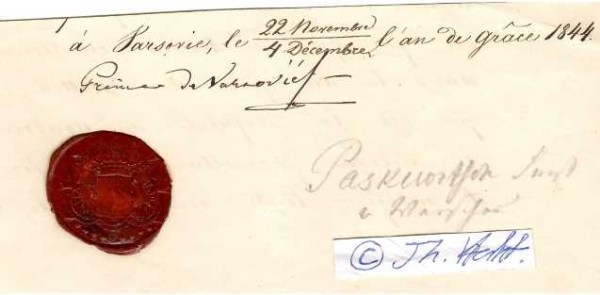 à Varsovie, le 22 Novembre / 4 Décembre, l'an de grâce 1844.
Prince de Varsovie
Fürst
v Warschau
© Th.